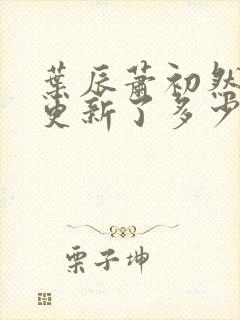 葉辰蕭初然
更新了多少
栗子坤